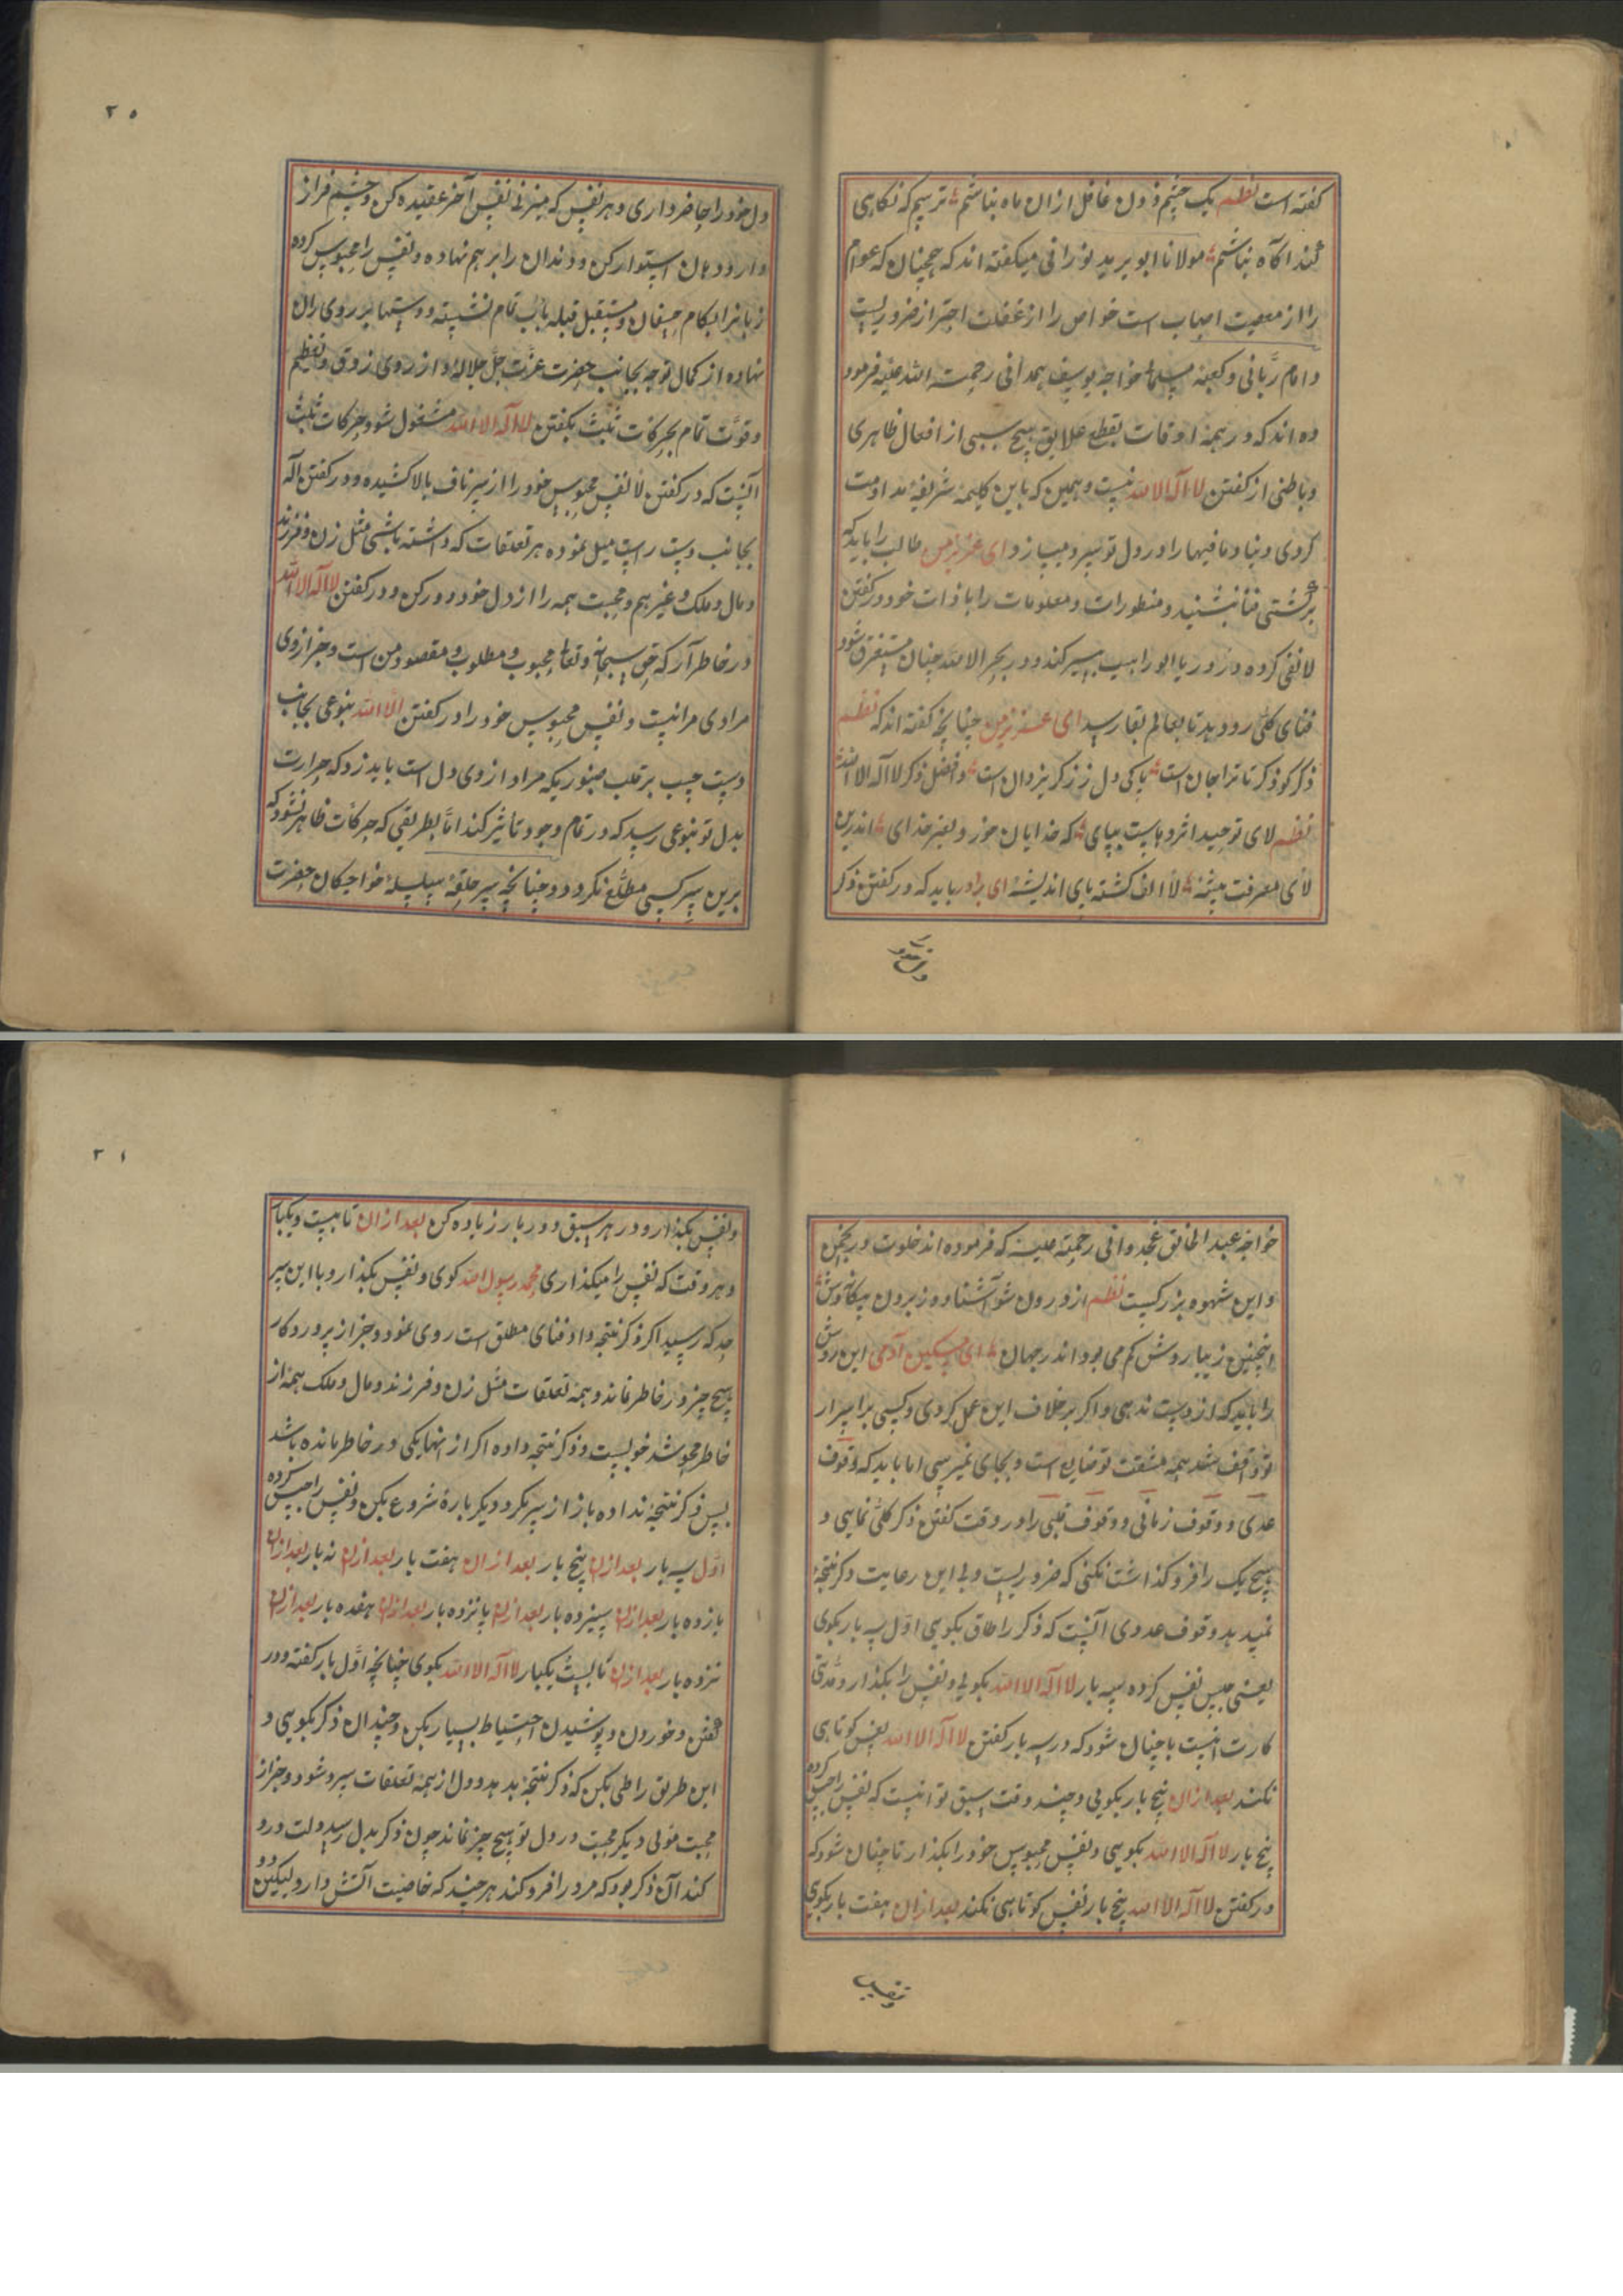 گفته است نظم یک چشم زدن غافل ازان ماه نباشم ترسم که نکاهی
کند اکاه نباشم مولانا ابو یزید نورانی میکفته اند که چنان که عوام
را از معصیت است خواص را از غفلت احتراز ضروریست
و امام ربانی و خواجه یوسف همدانی رحمت الله علیه فرمو
ده اند که در همه اوقات بقطع علایق هیچ سببی از افعال ظاهری
و باطنی از کفتن لا اله الا الله نیست و همین که باین کلیمه شریفه مداومت
کردی دنیا و مافیها را در دل تو سرد میسازد ای عزیز من طالب را باید که
بر کشتی فنا نشیند و منظورات و معلومات را با ذات خود در کفتن
لا نفی کرده در دریا سیر کند و در بحر الا الله چنان مستغرق شود
فنای کلی رو دهد تا بعالم بقا رسید ای عزیز من چنانچه کفته اند که نظم
ذکر کو ذکر تا ترا جان است پاکی دل ز ذکر یزدان است و افضل ذکر لا اله الا الله
نظم لای توحید بپای که خدایان خورد بغیر خدای اندرین
لای معرفت لا الف کشته بای اندیشه ای برادر باید که در کفتن ذکر
دل خود را
دل خود را حاضر داری و هر نفس که میزنی نفس آخر عقیده کن و چشم فراز
دار و دهان استوار کن و دندان را بر هم نهاده و نفس را محبوس کرده
زبانرا بکام چسفان و مستقبل قبله بادب تمام نشسته و دستها بر روی ران
نهاده از کمال توجه بجانب حضرت عزت جل جلاله و از روی ذوق و تعظیم
و قوت تمام بحرکات ثلث بکفتن لا اله الا الله مشغول شو و حرکات ثلث
آنست که در کفتن لا نفس محبوس خود را از سر ناف بالا کشیده و در کفتن اله
بجانب دست راست میل نموده هر تعلقات که داشته باشی مثل زن و فرزند
و مال و ملک و غیرهم و محبت همه را از دل خود دور کن و در کفتن لا اله الا الله
در خاطر آر که حق سبحانه و تعالی محبوب و مطلوب و مقصود من است و جز از وی
مرادی مرا نیست و نفس محبوس خود را در کفتن الا الله بنوعی بجانب
دست چپ بر قلب صنوبری که مراد از وی دل است باید زد که حرارت
بدل تو بنوعی رسد که در تمام وجود تاثیر کند اما بطریقی که حرکات ظاهر نشود که
برین سر کسی مطلع نکردد و چنانچه سر حلقه سلسله خواجکان حضرت
۲۵
خواجه عبد الخالق غجدوانی رحمته علیه که فرموده اند خلوت در انجمن
و این شهوه بزرکیست نظم از درون شو آشنا و وز برون بیکانه وش
اینچنین زیبا روش کم می بود اندر جهان ای مسکین آدمی این روش
را باید که از دست ندهی و اکر برخلاف این عمل کردی و کسی بر اسرار
تو واقف شد همه مشقت تو ضایع است و بجای نمیرسی اما باید که وقوف
عددی و وقوف زمانی و وقوف قلبی را در وقت کفتن ذکر کلی نمایی و
هیچ یک را فرو کذاشت نکنی که ضروریست و بی این رعایت ذکر نتیجه
نمیدهد وقوف عددی آنست که ذکر را طاق بکویی اول سه بار بکوی
یعنی حبس نفس کرده سه بار لا اله الا الله بکویی و نفس را بکذار و مدتی
کارت اینست تا چنان شود که در سه بار کفتن لا اله الا الله نفس کوتاهی
نکند بعد ازان پنج بار بکویی و چند وقت سبق تو اینست که نفس را حبس کرده
پنج بار لا اله الا الله بکویی و نفس محبوس خود را بکذار تا چنان شود که
در کفتن لا اله الا الله پنج بار نفس کوتاهی نکند بعد ازان هفت بار بکوی
و نفس
و نفس بکذار و در هر سبق دو بار زیاده کن بعد ازان تا بیست و یکبار
و هر وقت که نفس را میکذاری محمد رسول الله کوی و نفس بکذار و با این سر
حد که رسید اکر ذکر نتیجه داد فنای مطلق است روی نمود و جز از پروردکار
هیچ چیز در خاطر نماند و همه تعلقات مثل زن و فرزند و مال و ملک همه از
خاطر محو شد خوبست و ذکر نتیجه داده اکر از اینها یکی در خاطر مانده باشد
پس ذکر نتیجه نداده باز از سر بکرد و دیکر باره شروع بکن و نفس را حبس کرده
اول سه بار بعد ازان پنج بار بعد ازان هفت بار بعد ازان نه بار بعد ازان
یازده بار بعد ازان سیزده بار بعد ازان پانزده بار بعد ازان هفده بار بعد ازان
نزده بار بعد ازان تا بیست یکبار لا اله الا الله بکوی چنانچه اول بار کفته و در
کفتن و خوردن و پوشیدن احتیاط بسیار بکن و چندان ذکر بکویی و
این طریق را طی بکن که ذکر نتیجه بدهد و دل از همه تعلقات سرد شود و جز از
محبت مولی دیکر محبت در دل تو هیچ چیز نماند چون ذکر بدل رسد دلت درد
کند آن ذکر بود که مرد را فرد کند هر چند که خاصیت آتش دارد لیکن
۲۶